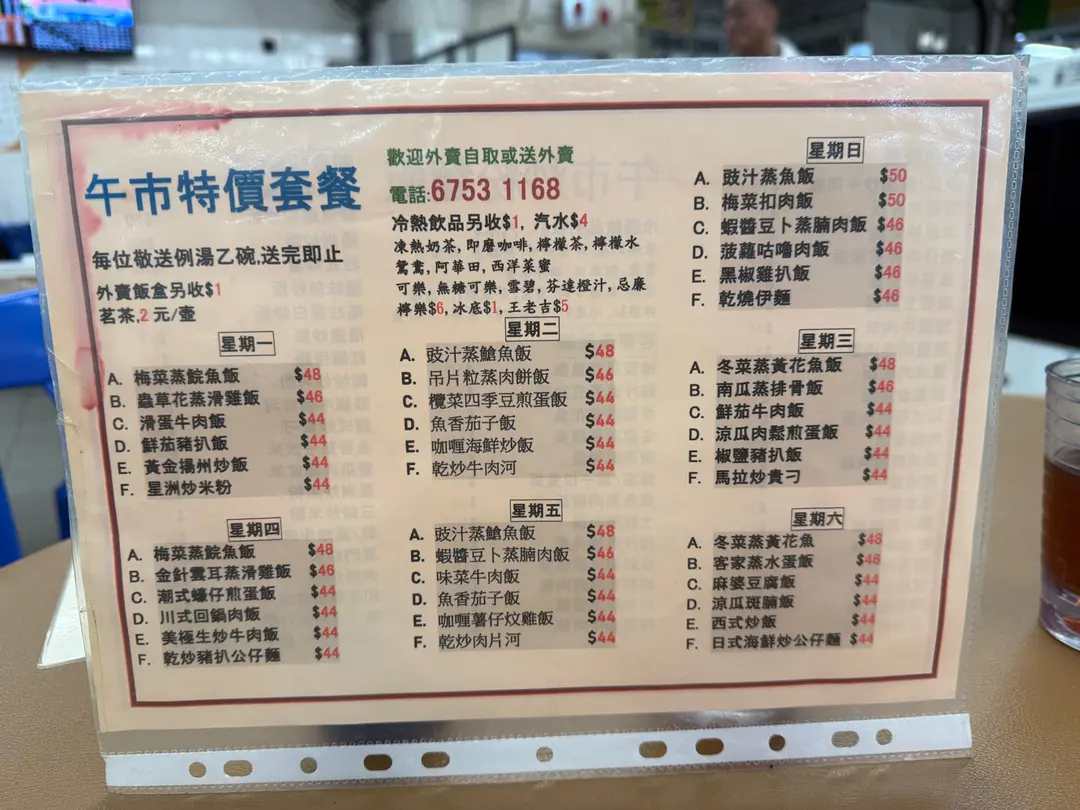 午市特價套餐
每位敬送例湯乙碗,送完即止
外賣飯盒另收$1
茗茶,2 元/壺
歡迎外賣自取或送外賣
電話:6753 1168
冷熱飲品另收$1, 汽水$4
凍熱奶茶,即磨咖啡,檸檬茶,檸檬水
鴛鴦,阿華田,西洋菜蜜
可樂,無糖可樂,雪碧,芬達橙汁,忌廉
檸樂$6,冰底$1,王老吉$5
星期日
A. 豉汁蒸魚飯 $50
B. 梅菜扣肉飯 $50
C. 蝦醬豆卜蒸腩肉飯 $46
D. 菠蘿咕嚕肉飯 $46
E. 黑椒雞扒飯 $46
F. 乾燒伊麵 $46
星期一
A. 梅菜蒸鯇魚飯 $48
B. 蟲草花蒸滑雞飯 $46
C. 滑蛋牛肉飯 $44
D. 鮮茄豬扒飯 $44
E. 黃金揚州炒飯 $44
F. 星洲炒米粉 $44
星期二
A. 豉汁蒸鯧魚飯 $48
B. 吊片粒蒸肉餅飯 $46
C. 欖菜四季豆煎蛋飯 $44
D. 魚香茄子飯 $44
E. 咖喱海鮮炒飯 $44
F. 乾炒牛肉河 $44
星期三
A. 冬菜蒸黃花魚飯 $48
B. 南瓜蒸排骨飯 $46
C. 鮮茄牛肉飯 $44
D. 涼瓜肉鬆煎蛋飯 $44
E. 椒鹽豬扒飯 $44
F. 馬拉炒貴刁 $44
星期四
A. 梅菜蒸鯇魚飯 $48
B. 金針雲耳蒸滑雞飯 $46
C. 潮式蠔仔煎蛋飯 $44
D. 川式回鍋肉飯 $44
E. 美極生炒牛肉飯 $44
F. 乾炒豬扒公仔麵 $44
星期五
A. 豉汁蒸鯧魚飯 $48
B. 蝦醬豆卜蒸腩肉飯 $46
C. 味菜牛肉飯 $44
D. 魚香茄子飯 $44
E. 咖喱薯仔炆雞飯 $44
F. 乾炒肉片河 $44
星期六
A. 冬菜蒸黃花魚 $48
B. 客家蒸水蛋飯 $46
C. 麻婆豆腐飯 $44
D. 涼瓜斑腩飯 $44
E. 西式炒飯 $44
F. 日式海鮮炒公仔麵 $44